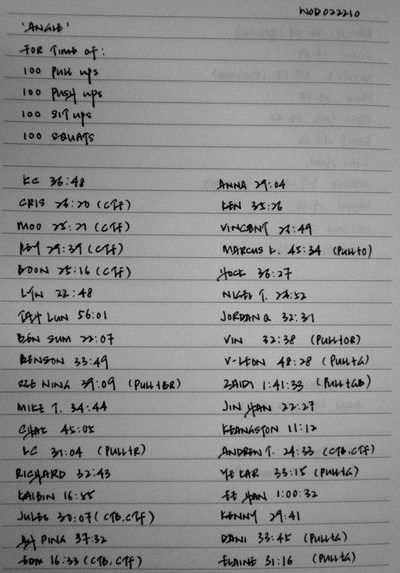 WOD022210
'ANGLE'
FOR TIME OF:
100 PULL UPS
100 PUSH UPS
100 SIT UPS
100 SQUATS
KC 36:48
CRIS 26:20 (CTF)
MOO 25:21 (CTF)
ROY 29:39 (CTF)
BOON 25:16 (CTF)
LYN 22:48
TAH LUN 56:01
BEN SUM 22:07
BENSON 33:49
SZE NING 39:09 (PULL+BR)
MIKE T. 34:44
CHAE 45:05
LC 31:04 (PULL+R)
RICHARD 32:43
KAIBIN 16:55
JULES 30:07 (CTB, CTF)
AH PING 37:32
EDM 16:33 (CTB, CTF)
ANNA 29:04
KEN 35:26
VINCENT 26:49
MARCUS L. 45:34 (PULL+O)
HOCK 36:27
NIGEL T. 26:52
JORDAN Q 32:31
VIN 32:38 (PULL+OR)
V-LEON 48:28 (PULL+G)
ZAIDI 1:41:33 (PULL+GB)
JIN HAN 22:27
KEANGSTON 11:12
ANDREW T. 24:33 (CTB, CTF)
YE KAR 33:15 (PULL+G)
EE HAN 1:00:32
KENNY 29:41
DANI 33:45 (PULL+G)
ELAINE 31:16 (PULL+G)